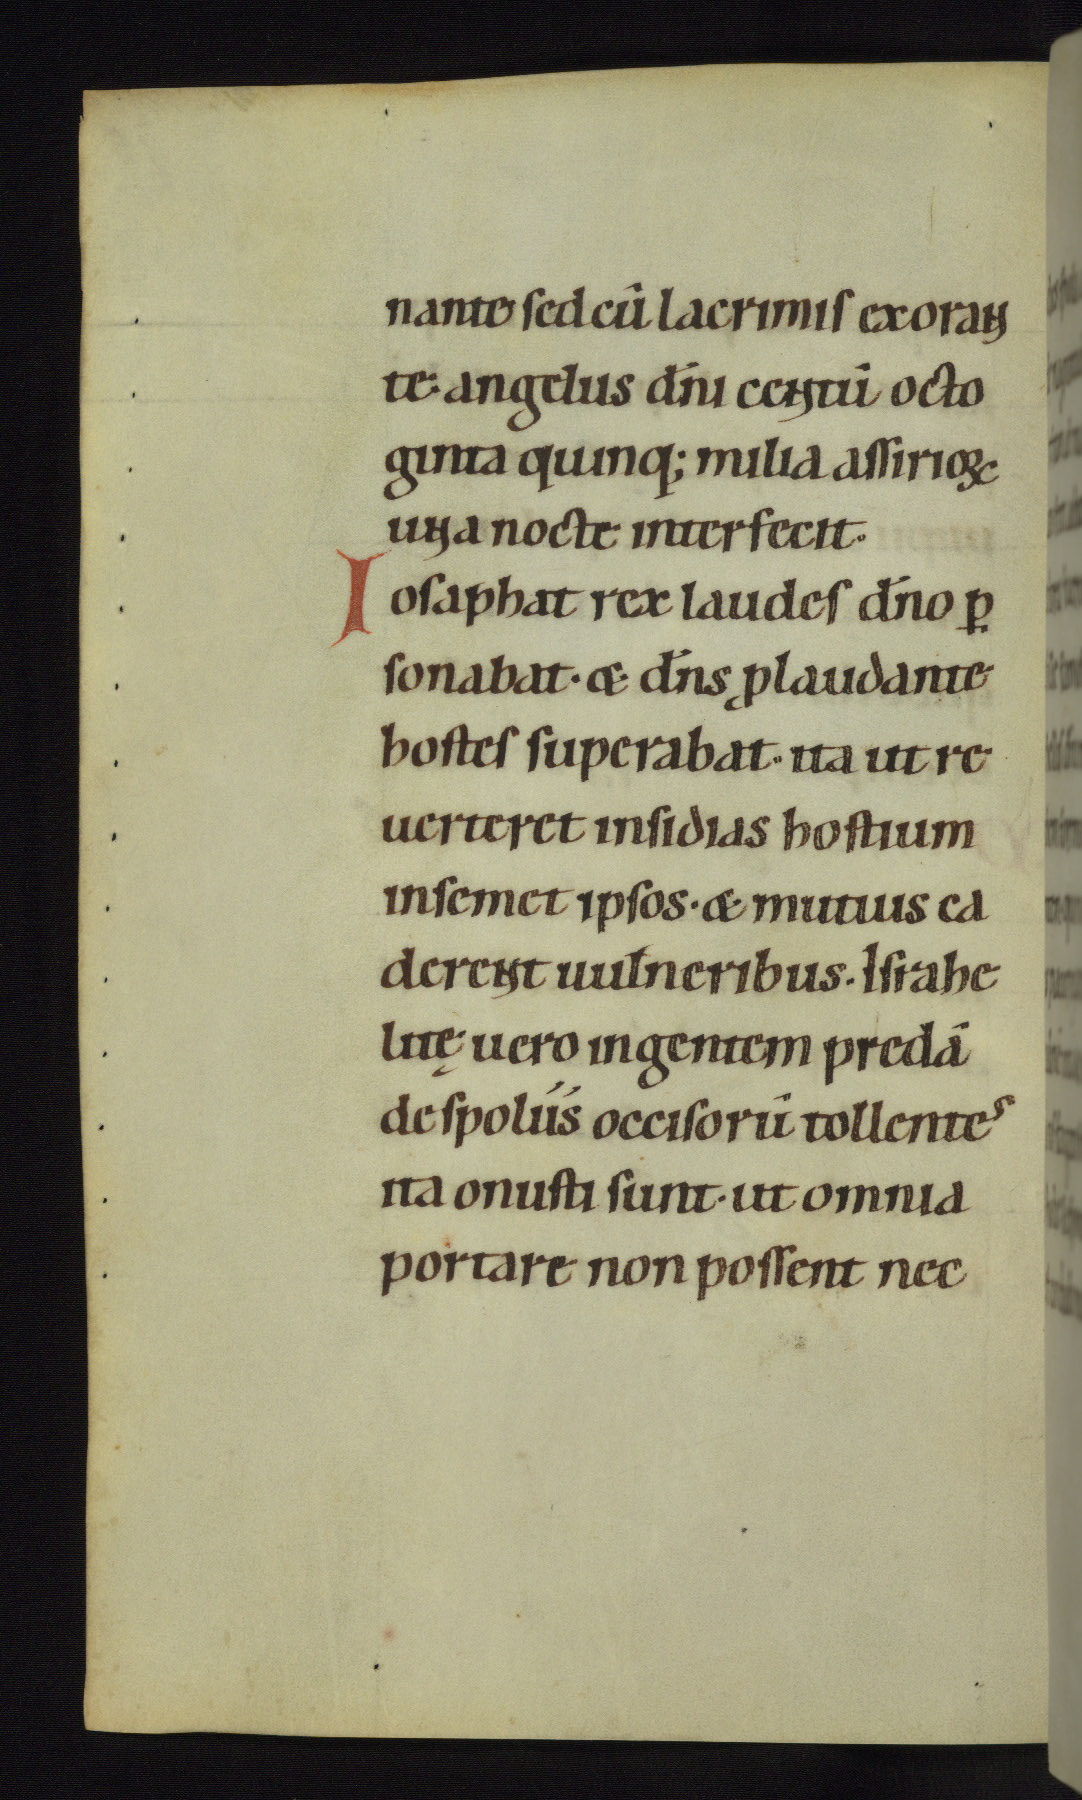 nante sed cū lacrimis exoran
te. angelus dn̄i centū octo
ginta quinq; milia assirioꝝ
una nocte interfecit.
Iosaphat rex laudes dn̄o ꝑ
sonabat. & dn̄s ꝓ laudante
hostes superabat. ita ut re
uerteret insidias hostium
in semet ipsos. & mutuis ca
derent uulneribus. Israhe
litę uero ingentem predā
de spoliis occisorū tollentes
ita onusti sunt. ut omnia
portare non possent nec